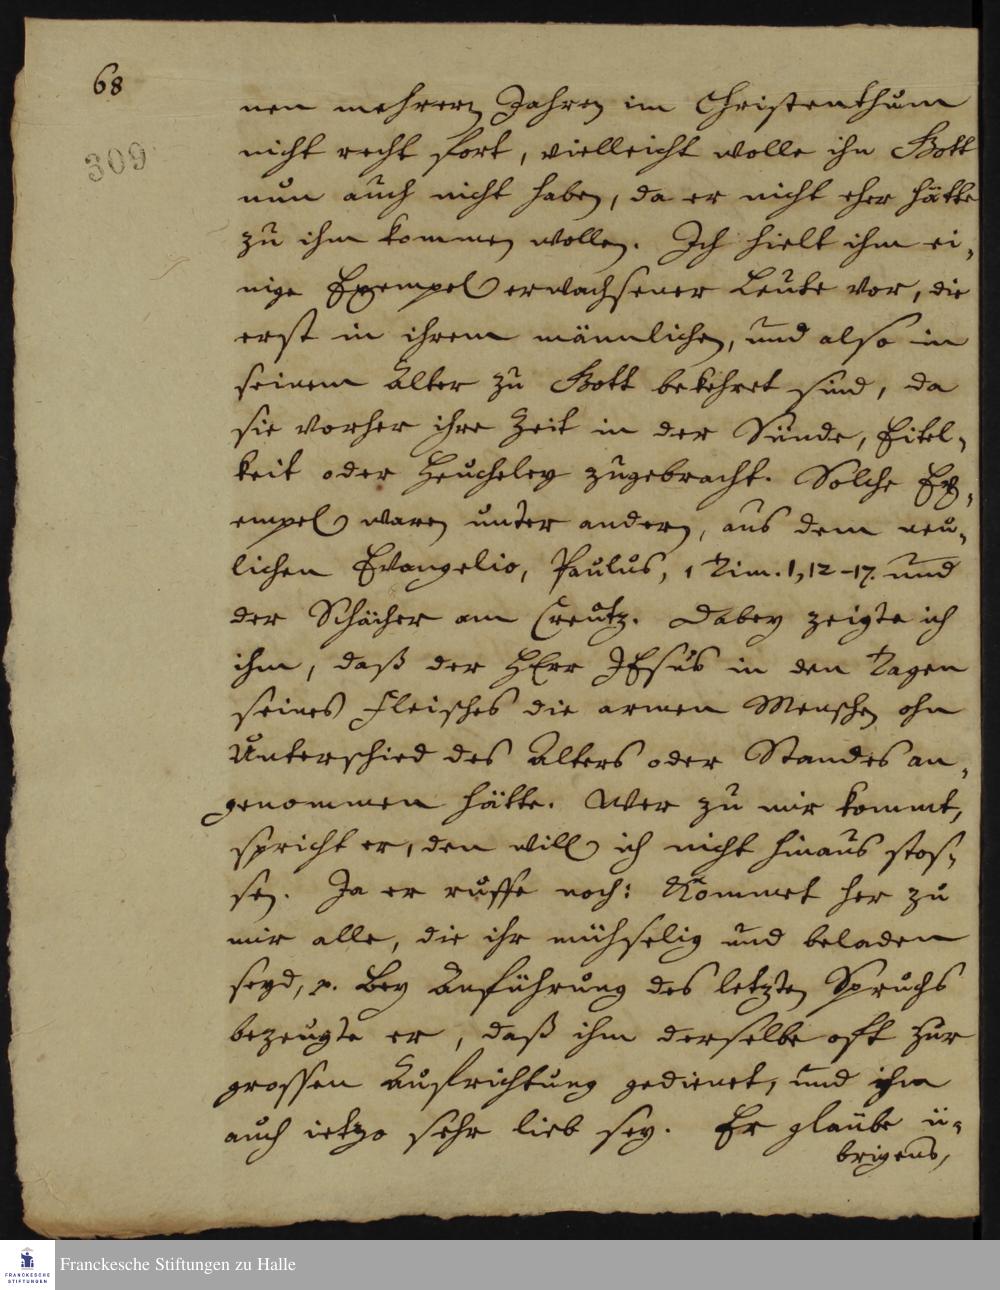 68
309
nen mehrern Jahren im Christenthum
nicht recht fort, vielleicht wolle ihn Gott
nun auch nicht haben, da er nicht eher hätte
zu ihm kommen wollen. Ich hielt ihm ei-
nige Exempel erwachsener Leute vor, die
erst in ihrem männlichen, und also in
seinem Alter zu Gott bekehret sind, da
sie vorher ihre Zeit in der Sünde, Eitel-
keit oder Heucheley zugebracht. Solche Ex-
empel waren unter andern, aus dem neu-
lichen Evangelio, Paulus, 1 Tim. 1, 12-17. und
der Schächer am Creutz. Dabey zeigte ich
ihm, daß der HErr JEsus in den Tagen
seines Fleisches die armen Menschen ohn
Unterschied des Alters oder Standes an-
genommen hätte. Wer zu mir kommt,
spricht er, den will ich nicht hinaus stos-
sen. Ja er ruffe noch: Kommet her zu
mir alle, die ihr mühselig und beladen
seyd, p. Bey Anführung des letzten Spruchs
bezeugte er, daß ihm derselbe oft zur
grossen Aufrichtung gedienet, und ihm
auch ietzo sehr lieb sey. Er glaube ü-
brigens,
FRANCKESCHE
STIFTUNGEN
Franckesche Stiftungen zu Halle